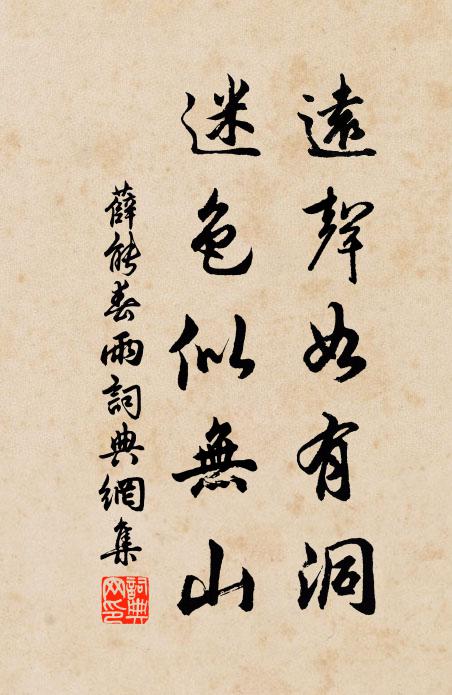 遠聲如有洞
迷色似無山
薛能春雨詞典網集
詞典網印